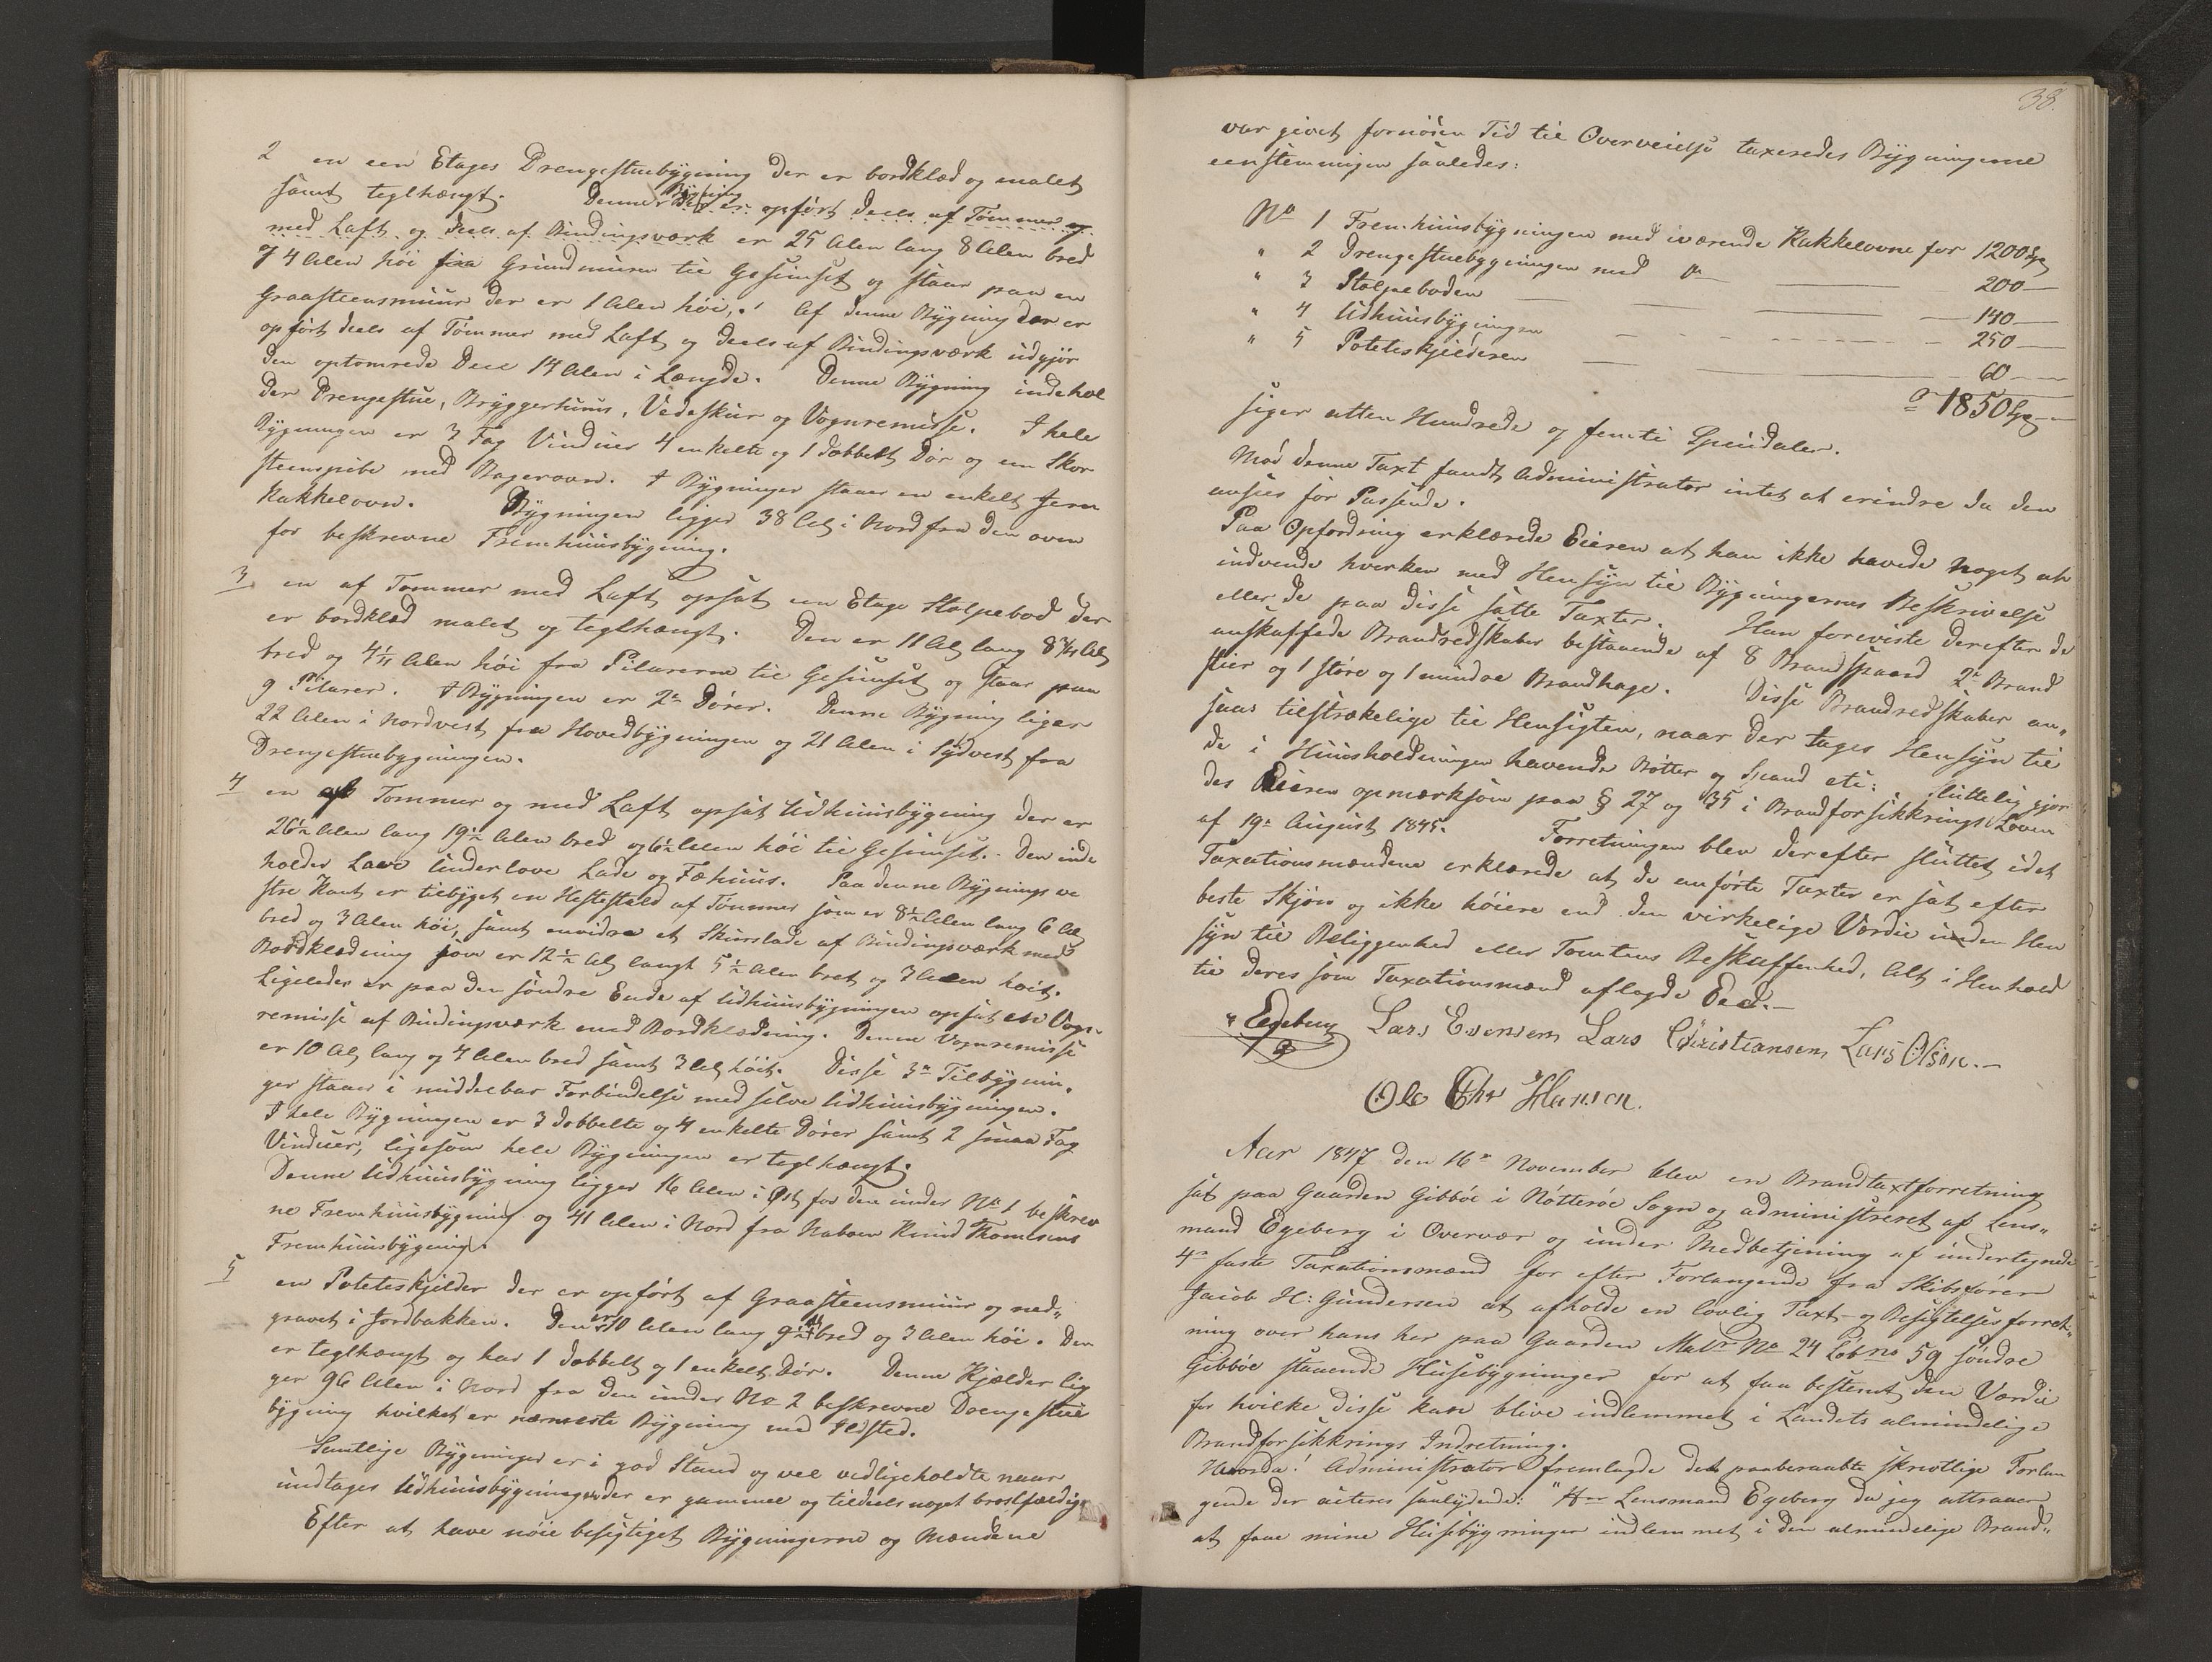 2 en een Etages Drengestuebÿgning der er bordklæd og malet
samt teglhængt. Denne Bÿgning der er opført deels af Tømmer og
med Laft og deels af Bindingsværk er 25 Alen lang 8 Alen bred
og 4 Alen høi fra Grundmuren til Gesimset og staar paa en
Graasteensmuur der er 1 Alen høi. Af denne Bÿgning der er
opført deels af Tømmer med Laft og deels af Bindingsværk udgjør
den optømrede Deel 14 Alen i Længde. Denne Bÿgning indehol
der Drengestue, Brÿggerhuus, Vedeskur og Vognremisse. I hele
Bÿgningen er 3 Fag Vinduer 4 enkelte og 1 dobbelt Dør og een Skor
steenspibe med Bagerovn. I Bÿgningen staaer en enkelt Jern
Kakkelovn. Bÿgningen ligger 38 Al. i Nord fra den oven
for beskrevne Fremhuusbÿgning.
3 en af Tømmer med Laft opsat een Etage Stolpebod der
er bordklæd malet og teglhængt. Den er 11 Al. lang 8 3/4 Al.
bred og 4 1/4 Alen høi fra Pilarerne til Gesimset og staar paa
9 Pilarer. I Bÿgningen er 2de Dører. Denne Bÿgning liger
22 Alen i Nordvest fra Hovedbÿgningen og 21 Alen i Sÿdvest fra
Drengestuebygningen.
4 en af Tømmer og med Laft opsat Udhuusbÿgning der er
26 1/2 Alen lang 19 1/2 Alen bred og 6 1/2 Alen høi til Gesimset. Den inde
holder Lave Underlove Lade og Fæhuus. Paa denne Bÿgnings ve
stre Kant er tilbÿget en Hestestald af Tømmer som er 8 1/2 Alen lang 6 Al.
bred og 3 Alen høi, samt envidre et Skurslade af Bindingsværk med
Bordklædning som er 12 1/2 Al. langt 5 1/2 Alen bret og 3 Alen høit.
Ligeledes er paa den søndre Ende af Udhuusbÿgningen opsat en Vogn
remisse af Bindingsværk med Bordklædning. Denne Vognremisse
er 10 Al. lang og 4 Alen bred samt 3 Al. høit. Disse 3de Tilbÿgnin„
ger staaer i middelbar Forbindelse med selve Udhuusbÿgningen.
I hele Bÿgningen er 3 dobbelte og 4 enkelte Dører samt 2 smaa Fag
Vinduer, ligesom hele Bÿgningen er teglhængt.
Denne Udhuusbÿgning ligger 16 Alen i Øst for den under No 1 beskrev
ne Fremhuusbÿgning og 41 Alen i Nord fra Naboen Knud Thomesens
Fremhuusbÿgning.
5 en Poteteskjelder der er opført af Graasteensmuur og ned„
gravet i Jordbakken. Den er 10 Alen lang 9 1/2 Al bred og 3 Alen høi. Den
er teglhængt og har 1 dobbelt og 1 enkelt Dør. Denne Kjælder lig
ger 96 Alen i Nord fra den under No 2 beskrevne Drengestue
bÿgning hvilket er nærmeste Bÿgning med Ildsted.
Samtlige Bÿgninger er i god Stand og vel vedligeholdte naar
undtages Udhuusbÿgningen der er gammel og tildeels noget brøstfældig.
Efter at have nøie besigtiget Bÿgningerne og Mændene
38.
var givet fornøden Tid til Overveielse taxeredes Bÿgningerne
eenstemmigen saaledes:
No 1 Fremhuusbÿgningen med iværende Kakkelovne for 1200 Sp
" 2 Drengestuebygningen med Do 200
" 3 Stolpeboden 140
" 4 Udhuusbÿgningen 250
" 5 Poteteskjelderen 60
= 1850 Sp
siger atten Hundrede og femti Specidaler.
Mod denne Taxt fandt Administrator intet at erindre da den
ansees for Passende.
Paa Opfordring erklærede Eieren at han ikke havde noget at
indvende hverken med Hensÿn til Bÿgningernes Beskrivelse
eller de paa disse satte Taxter. Han foreviste derefter de
anskaffede Brandredskaber bestaaende af 8 Brandspand 2de Brand
stier og 1 støre og 1 mindre Brandhage. Disse Brandredskaber an„
saaes tilstrækelige til Hensigten, naar der tages Hensÿn til
de i Huusholdningen havende Bøtter og Spand etc: Sluttelig gjor
des Eieren opmærksom paa § 27 og 35 i Brandforsikkrings Loven
af 19de August 1845. Forretningen blev derefter sluttet idet
Taxationsmændene erklærede at de anførte Taxter er sat efter
beste Skjøn og ikke høiere end den virkelige Værdie uden Hen
sÿn til Beliggenhed eller Tomtens Beskaffenhed, Alt i Henhold
til deres som Taxationsmænd aflagde Eed.
Egeberg Lars Evensen Lars Christiansen Lars Olsen.
Ole Chr Hansen.
Aar 1847 den 16de November blev en Brandtaxtforretning
sat paa Gaarden Gibbøe i Nøtterøe Sogn og administreret af Lens„
mand Egeberg i Overvær og under Medbetjening af undertegnede
4re faste Taxationsmænd for efter Forlangende fra Skibsfører
Jacob H: Gundersen at afholde en lovlig Taxt- og Besigtelsesforret„
ning over hans her paa Gaarden Matr No 24 Løb no 59 søndre
Gibbøe staaende Husebÿgninger for at faa bestemt den Værdie
for hvilke disse kan blive indlemmet i Landets almindelige
Brandforsikkrings Indretning.
Hvorda! Administrator fremlagde det paaberaabte skrivtlige Forlan
gende der acteres saalÿdende: "Hr Lensmand Egeberg da jeg attraaer
at faae mine Husebÿgninger indlemmet i den almindelige Brand„